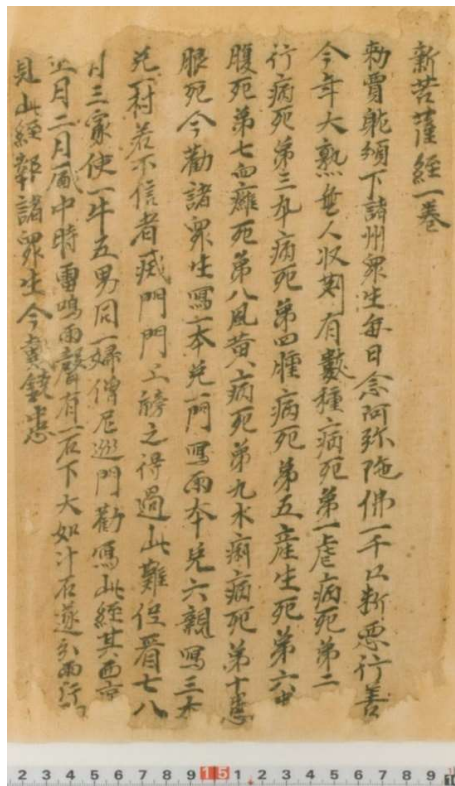 新菩薩經一卷
勑賈躭頒下諸州衆生每日念阿弥陁佛一千口斷惡行善
今年大熟無人収刈有數種病死第一虐病死第二
行病死第三卒病死第四腫病死第五産生死第六患
腹死第七血癰死第八風黄病死第九水痢病死第十患
眼死今勸諸衆生寫一本免一門寫兩本免六親寫三本
免一村若不信者滅門門上牓之得過此難但看七八
月三家使一牛五男同一婦僧尼巡門勸寫此經其西京
正月二月中時雷鳴雨聲有一石下大如汁石遂兩
見此經報諸衆生今